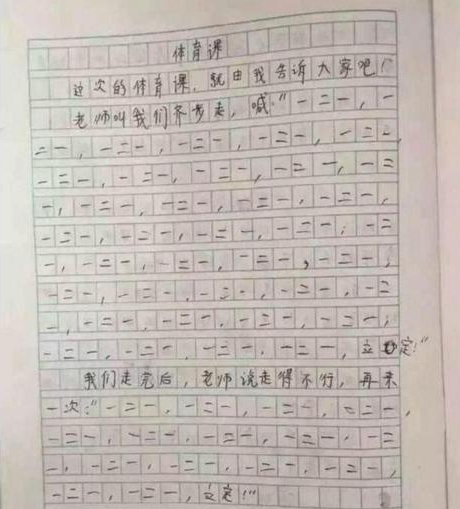 体育课
这次的体育课，就由我告诉大家吧！
老师叫我们齐步走，喊：“一二一，一
二一，一二一，一二一，一二一，一二一，
一二一，一二一，一二一，一二一，一二
一，一二一，一二一，一二一，一二一，
一二一，一二一，一二一，一二一，一二
一，一二一，一二一，一二一，一二一，
一二一，一二一，一二一，一二一，一二
一，一二一，一二一，一二一，一二一，
一二一，一二一，一二一，一二一，立定！”
我们走完后，老师说走得不行，再来
一次：“一二一，一二一，一二一，一二一，
一二一，一二一，一二一，一二一，一二
一，一二一，一二一，一二一，一二一，
一二一，一二一，立定！”